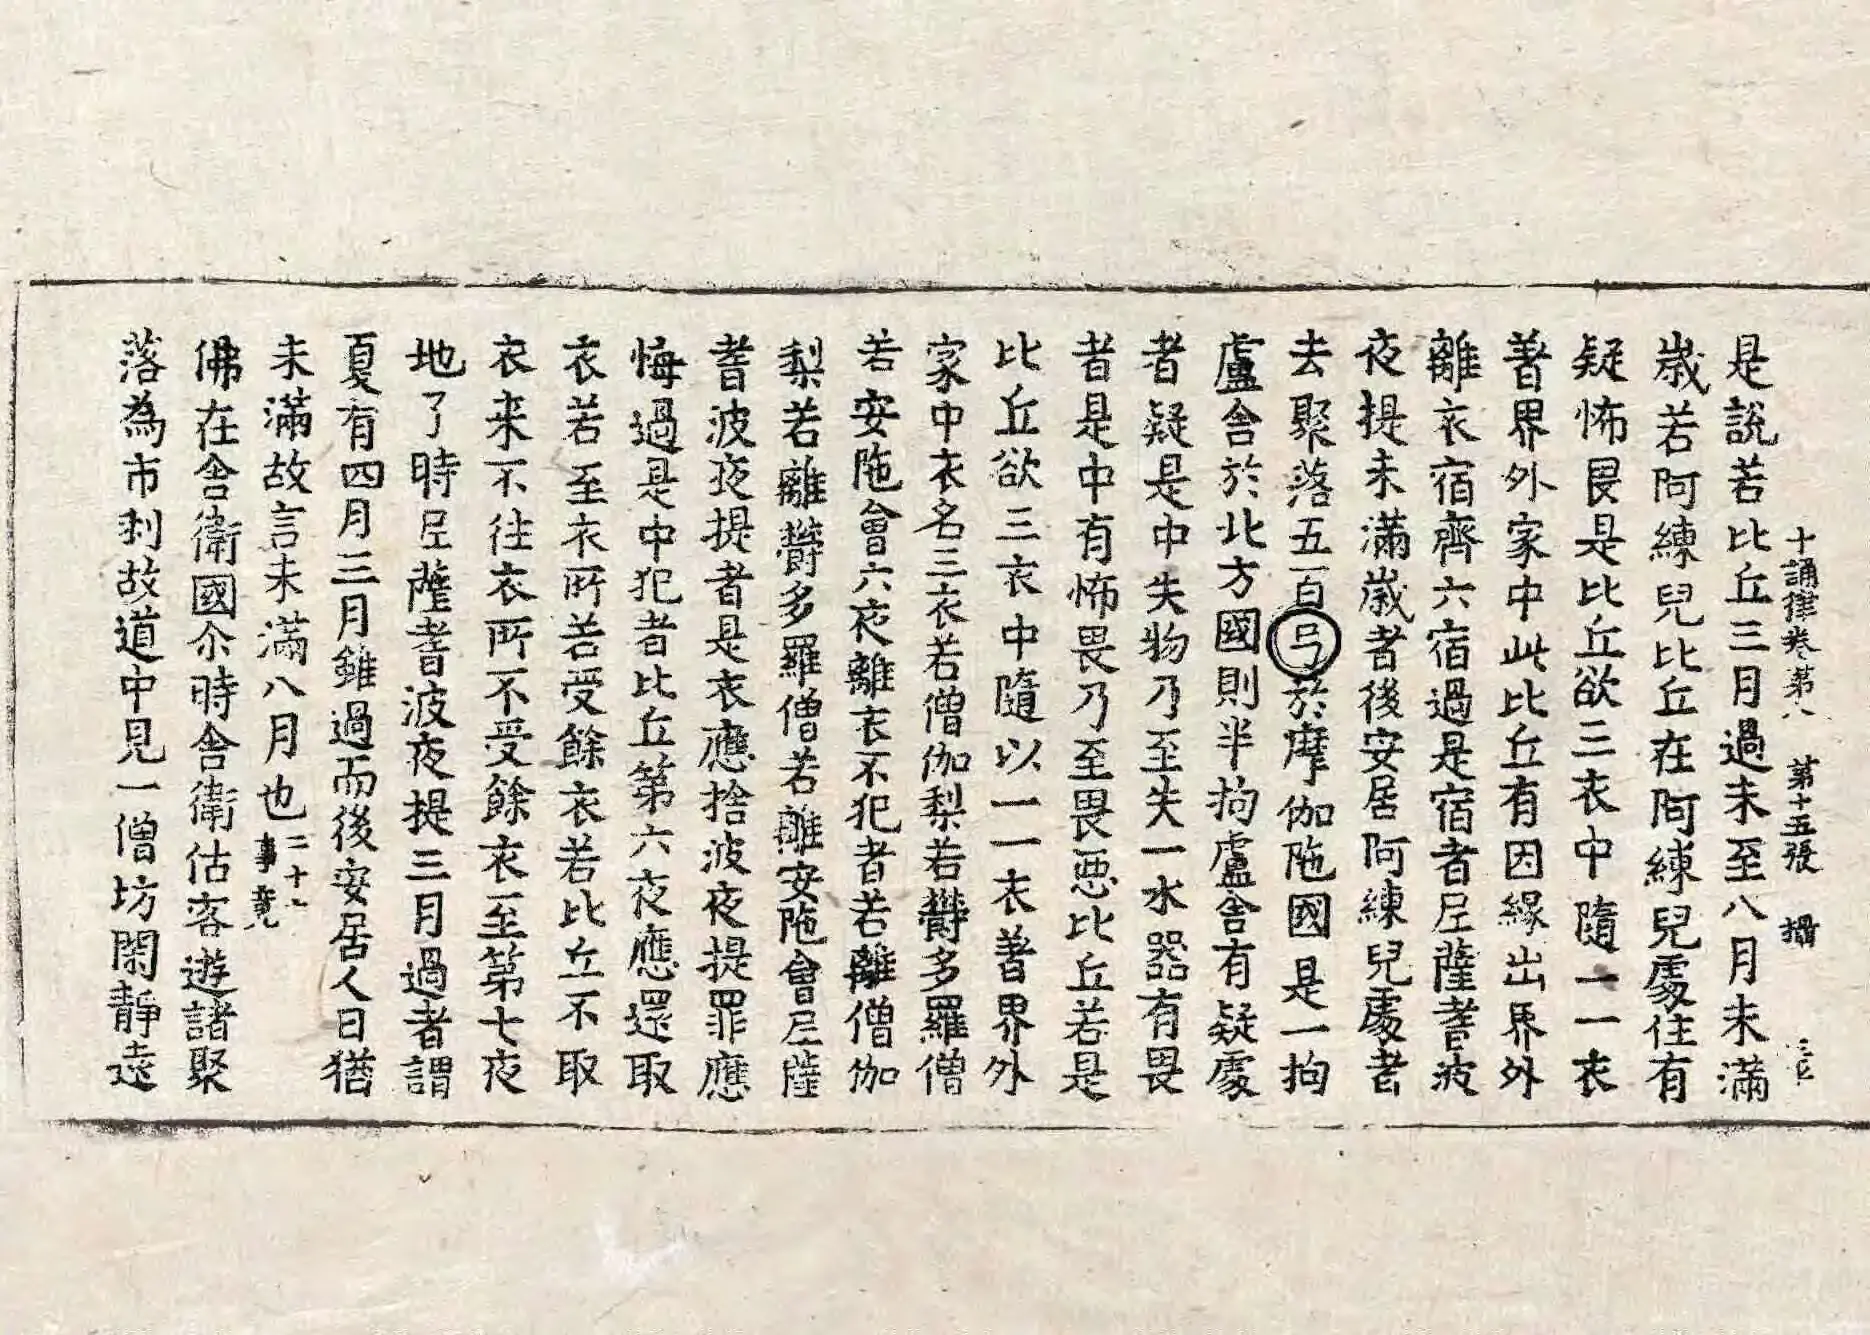 十誦律卷第八　第十五張　攝
是說若比丘三月過未至八月未滿
歲若阿練兒比丘在阿練兒處住有
疑怖畏是比丘欲三衣中隨一一衣
著界外家中此比丘有因緣出界外
離衣宿齊六宿過是宿者尼薩耆波
夜提未滿歲者後安居阿練兒處者
去聚落五百弓於摩伽陁國是一拘
盧舍於北方國則半拘盧舍有疑處
者疑是中失物乃至失一水器有畏
者是中有怖畏乃至畏惡比丘若是
比丘欲三衣中隨以一一衣著界外
家中衣名三衣若僧伽梨若欝多羅僧
若安陁會六夜離衣不犯者若離僧伽
梨若離欝多羅僧若離安陁會尼薩
耆波夜提者是衣應捨波夜提罪應
悔過是中犯者比丘第六夜應還取
衣若至衣所若受餘衣若比丘不取
衣来不往衣所不受餘衣至第七夜
地了時尼薩耆波夜提三月過者謂
夏有四月三月雖過而後安居人日猶
未滿故言未滿八月也二十八事竟
佛在舍衛國尒時舍衛估客遊諸聚
落為市利故道中見一僧坊閑靜遠